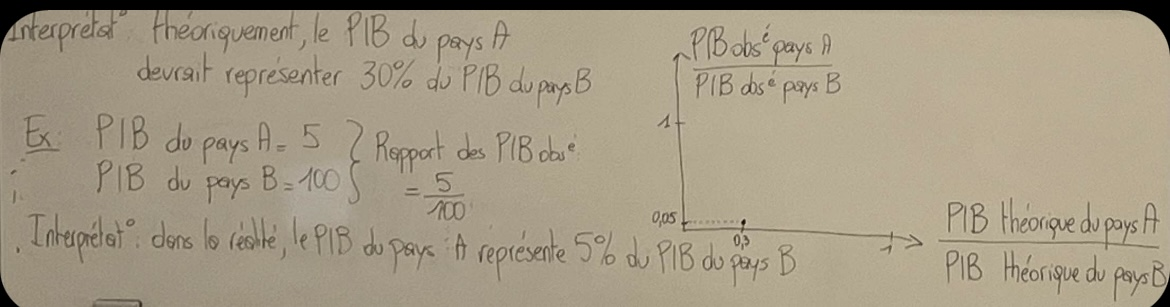 Interprétat°: théoriquement, le PIB du pays A
devrait représenter 30% du PIB du pays B
Ex: PIB du pays A = 5
PIB du pays B = 100
Rapport des PIB obsé
= 5/100
Interprétat°: dans la réalité, le PIB du pays A représente 5% du PIB du pays B
PIB obsé pays A
PIB obsé pays B
1
0,05
0,3
1
PIB théorique du pays A
PIB théorique du pays B